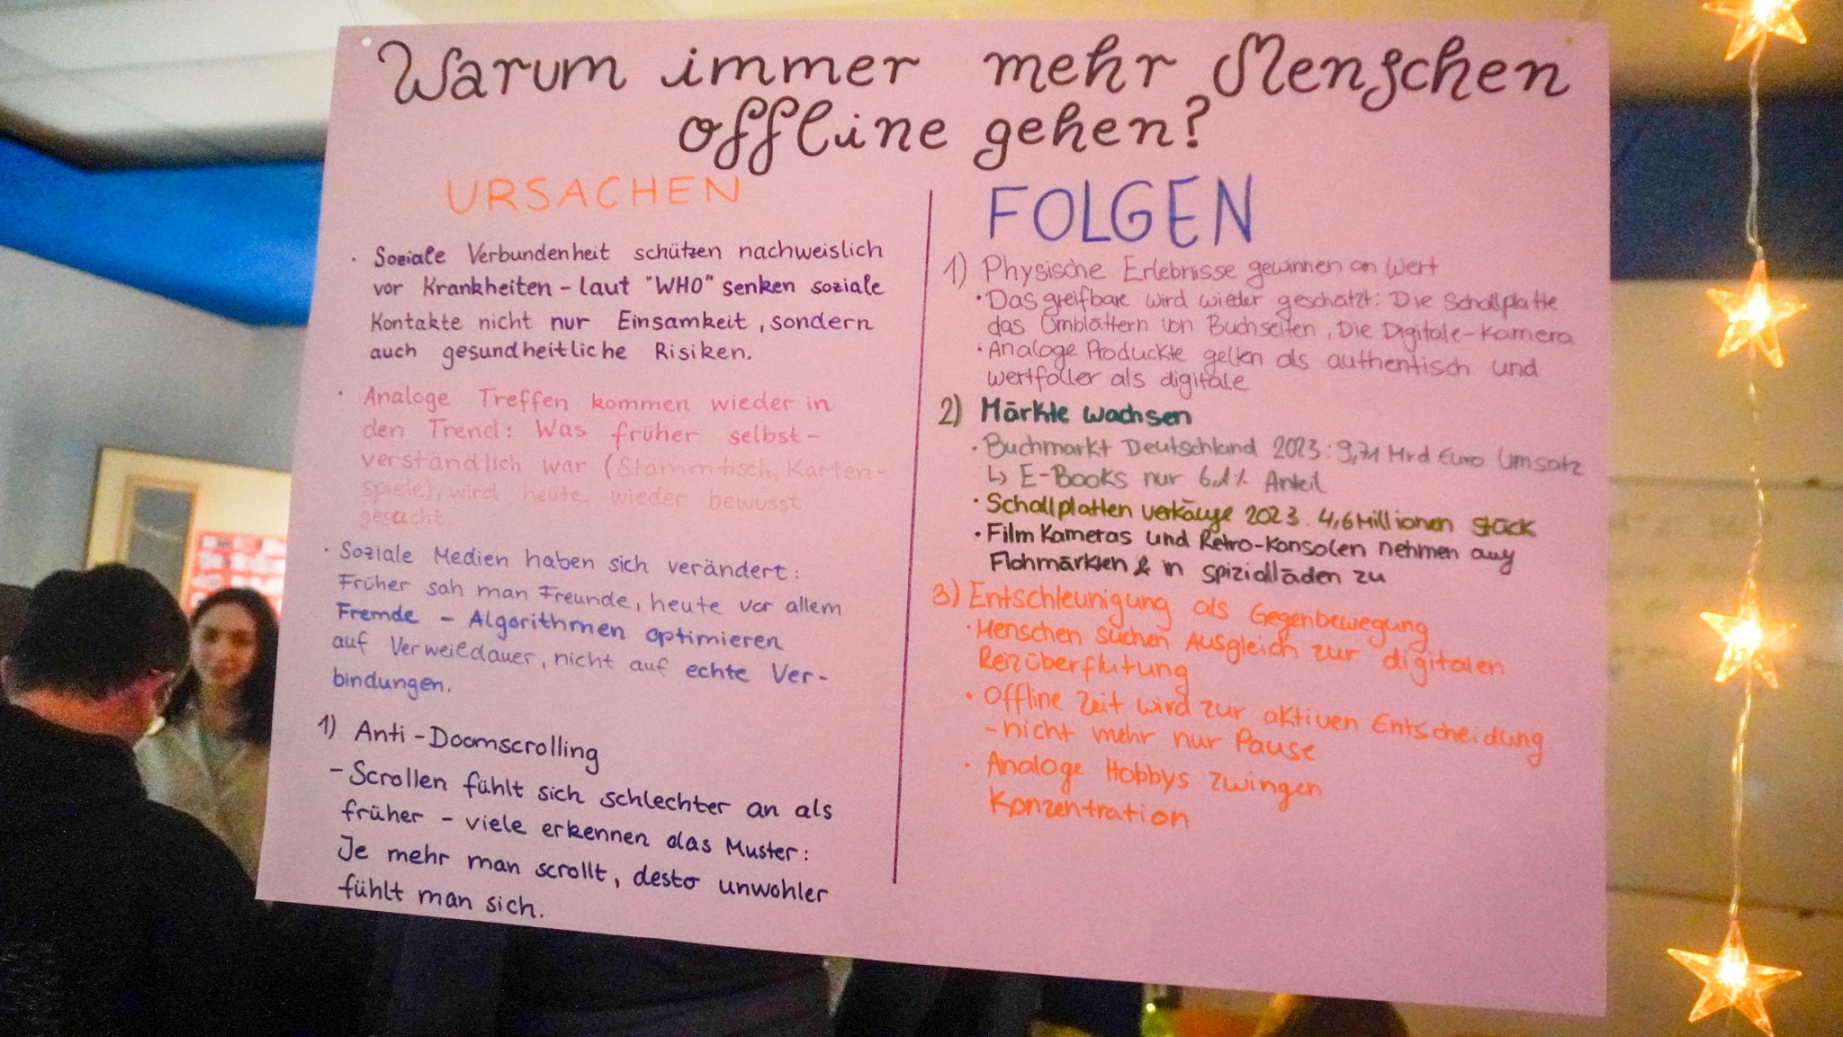 Warum immer mehr Menschen
offline gehen?
URSACHEN
· Soziale Verbundenheit schützen nachweislich
vor Krankheiten - laut "WHO" senken soziale
Kontakte nicht nur Einsamkeit, sondern
auch gesundheitliche Risiken.
· Analoge Treffen kommen wieder in
den Trend: Was früher selbst-
verständlich war (Stammtisch, Karten-
spiele), wird heute wieder bewusst
gesucht
· Soziale Medien haben sich verändert:
Früher sah man Freunde, heute vor allem
Fremde - Algorithmen optimieren
auf Verweildauer, nicht auf echte Ver-
bindungen.
1) Anti-Doomscrolling
- Scrollen fühlt sich schlechter an als
früher - viele erkennen das Muster:
Je mehr man scrollt, desto unwohler
fühlt man sich.
FOLGEN
1) Physische Erlebnisse gewinnen an Wert
· Das greifbare wird wieder geschätzt: Die Schallplatte
das Umblättern von Buchseiten, Die Digitale-Kamera
· Analoge Produckte gelten als authentisch und
wertfoller als digitale
2) Märkte wachsen
· Buchmarkt Deutschland 2023: 9,71 Mrd Euro Umsatz
↳ E-Books nur 6,1% Anteil
· Schallplatten verkäufe 2023. 4,6 Millionen stück
· Film Kameras und Retro-Konsolen nehmen auf
Flohmärkten & in spizialläden zu
3) Entschleunigung als Gegenbewegung
· Menschen suchen Ausgleich zur digitalen
Reizüberflutung
· Offline Zeit wird zur aktiven Entscheidung
- nicht mehr nur Pause
· Analoge Hobbys zwingen
Konzentration